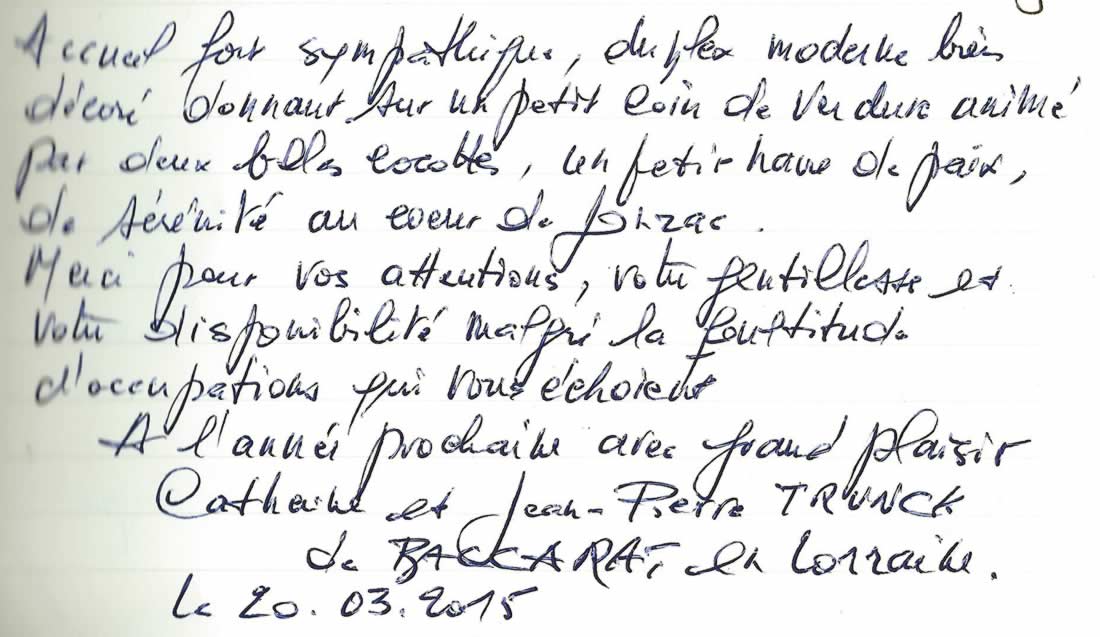 Accueil fort sympathique, duplex moderne bien
décoré donnant sur un petit coin de verdure animé
par deux belles cocottes, un petit havre de paix,
de sérénité au coeur de Jonzac.
Merci pour vos attentions, votre gentillesse et
votre disponibilité malgré la foultitude
d'occupations qui vous échoient
A l'année prochaine avec grand plaisir
Catherine et Jean-Pierre TRUNCK
de BACCARAT, en Lorraine.
le 20.03.2015